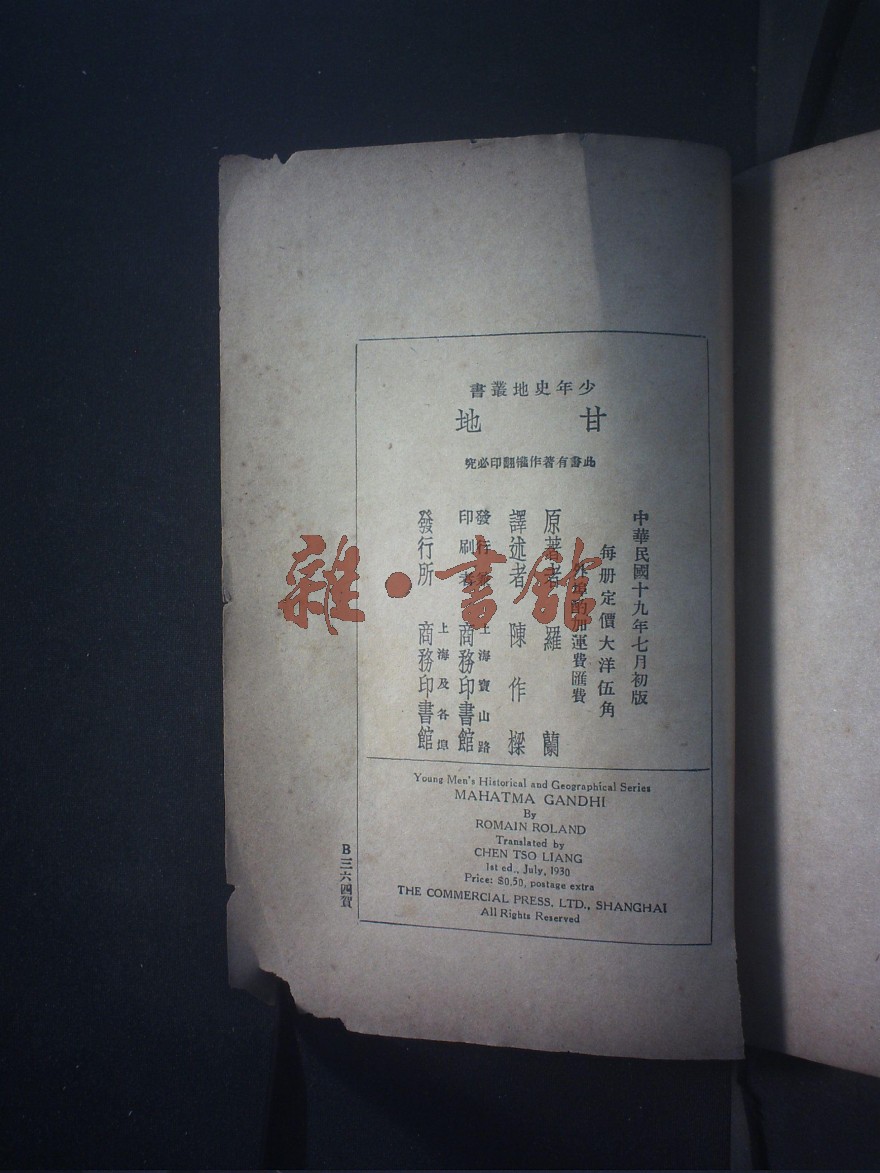 少年史地叢書
甘地
此書有著作權翻印必究
中華民國十九年七月初版
每册定價大洋伍角
外埠酌加運費匯費
原著者 羅蘭
譯述者 陳作樑
發行兼印刷者 上海寶山路 商務印書館
發行所 上海及各埠 商務印書館
Young Men's Historical and Geographical Series
MAHATMA GANDHI
By
ROMAIN ROLAND
Translated by
CHEN TSO LIANG
1st ed., July, 1930
Price: $0.50, postage extra
THE COMMERCIAL PRESS, LTD., SHANGHAI
All Rights Reserved
B三六四賀
雜·書館